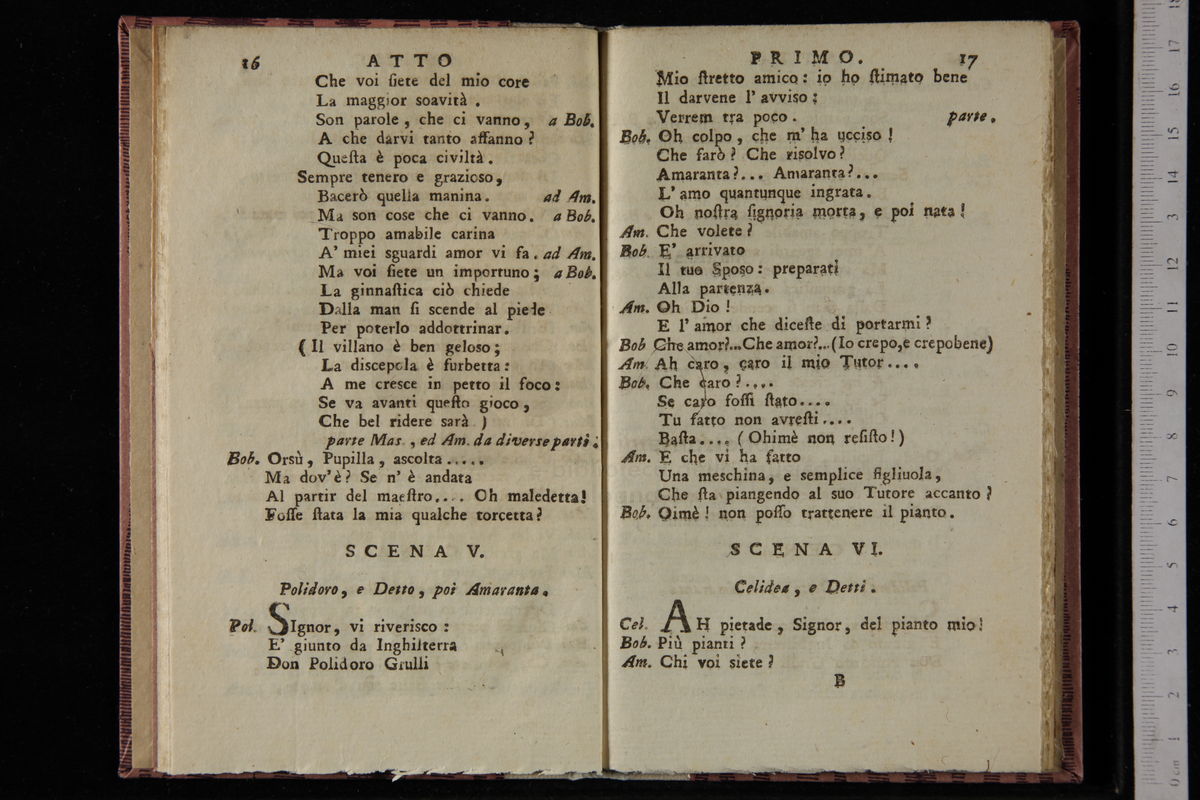 16 ATTO
Che voi ſiete del mio core
La maggior soavità .
Son parole , che ci vanno , a Bob.
A che darvi tanto affanno ?
Queſta è poca civiltà .
Sempre tenero e grazioso ,
Bacerò quella manina . ad Am.
Ma son cose che ci vanno . a Bob.
Troppo amabile carina
A' miei sguardi amor vi fa . ad Am.
Ma voi ſiete un importuno ; a Bob.
La ginnaſtica ciò chiede
Dalla man ſi scende al piede
Per poterlo addottrinar .
( Il villano è ben geloso ;
La discepola è furbetta :
A me cresce in petto il foco :
Se va avanti queſto gioco ,
Che bel ridere sarà . )
parte Mas. , ed Am. da diverse parti .
Bob. Orsù , Pupilla , ascolta . . . . .
Ma dov'è ? Se n' è andata
Al partir del maeſtro . . . . Oh maledetta !
Foſſe ſtata la mia qualche torcetta ?
SCENA V.
Polidoro , e Detto , poi Amaranta .
Pol. SIgnor , vi riverisco :
E' giunto da Inghilterra
Don Polidoro Grulli
PRIMO. 17
Mio ſtretto amico : io ho ſtimato bene
Il darvene l' avviso ;
Verrem tra poco . parte .
Bob. Oh colpo , che m' ha ucciso !
Che farò ? Che risolvo ?
Amaranta ? . . . Amaranta ? . . .
L' amo quantunque ingrata .
Oh noſtra ſignoria morta , e poi nata !
Am. Che volete ?
Bob. E' arrivato
Il tuo Sposo : preparati
Alla partenza .
Am. Oh Dio !
E l' amor che diceſte di portarmi ?
Bob Che amor? ... Che amor? ... (Io crepo, e crepo bene)
Am. Ah caro , caro il mio Tutor . . . .
Bob. Che caro ? . . . .
Se caro foſſi ſtato . . . .
Tu fatto non avreſti . . . .
Baſta . . . . ( Ohimè non reſiſto ! )
Am. E che vi ha fatto
Una meschina , e semplice figliuola ,
Che ſta piangendo al suo Tutore accanto ?
Bob. Oimè ! non poſſo trattenere il pianto .
SCENA VI.
Celidea , e Detti .
Cel. AH pietade , Signor , del pianto mio !
Bob. Più pianti ?
Am. Chi voi siete ?
B